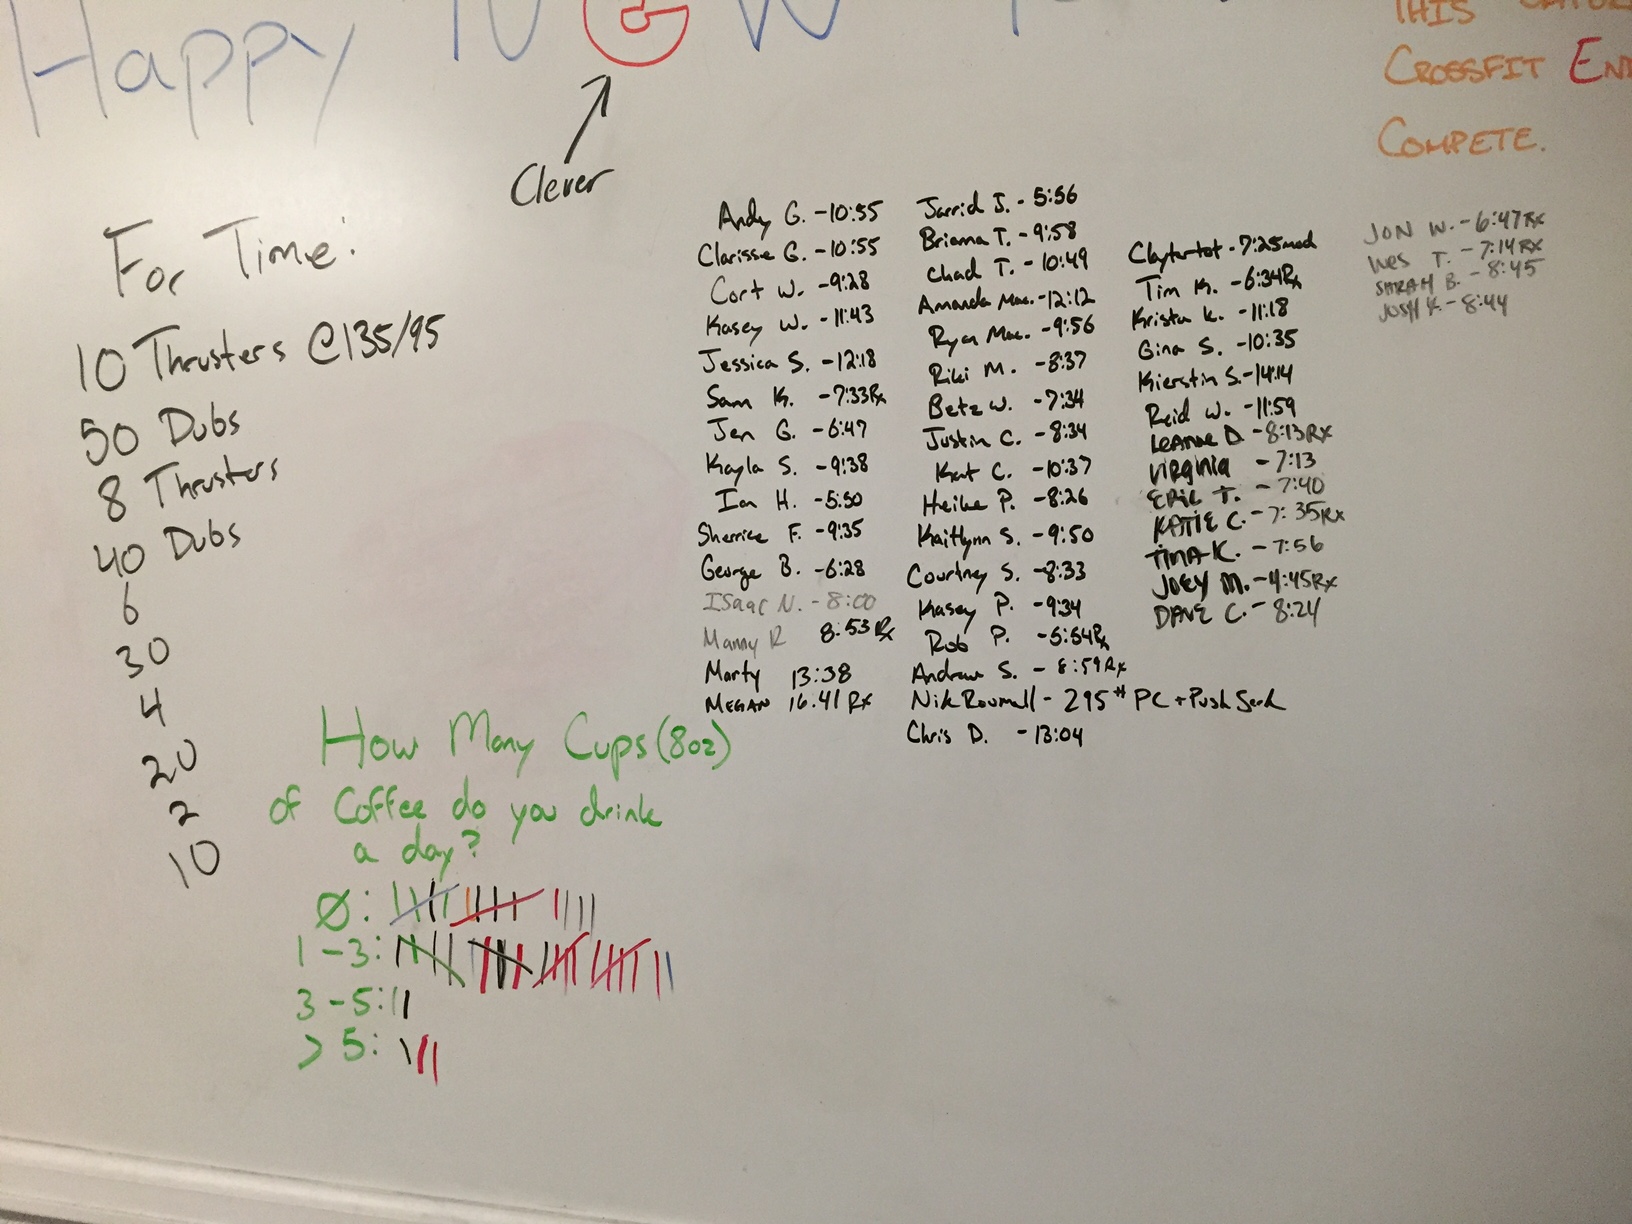 Happy NeW
THIS
CROSSFIT
COMPETE.
Clever
For Time:
10 Thrusters @135/95
50 Dubs
8 Thrusters
40 Dubs
6
30
4
20
2
10
Andy G. - 10:55
Clarisse G. - 10:55
Cort W. - 9:28
Kasey W. - 11:43
Jessica S. - 12:18
Sam K. - 7:33Rx
Jen G. - 6:47
Kayla S. - 9:38
Ian H. - 5:50
Sherrice F. - 9:35
George B. - 6:28
Isaac N. - 8:00
Manny R 8:53 Rx
Marty 13:38
MEGAN 16.41 Rx
Jarrid J. - 5:56
Briana T. - 9:58
Chad T. - 10:49
Amanda Mac. - 12:12
Ryan Mac. - 9:56
Riki M. - 8:37
Betz W. - 7:34
Justin C. - 8:34
Kat C. - 10:37
Heike P. - 8:26
Kaitlynn S. - 9:50
Courtney S. - 8:33
Kasey P. - 9:34
Rob P. - 5:54Rx
Andrew S. - 8:59Rx
Nik Roumell - 295# PC + Push Jerk
Chris D. - 13:04
Claytertot - 7:25mod
Tim K. - 6:34Rx
Krista K. - 11:18
Gina S. - 10:35
Kierstin S. - 14:14
Reid W. - 11:59
LeAnne D. - 8:13Rx
Virginia - 7:13
ERIC T. - 7:40
KATIE C. - 7:35Rx
TINA K. - 7:56
JOEY M. - 4:45Rx
DAVE C. - 8:24
JON W. - 6:47Rx
Wes T. - 7:14Rx
SARAH B. - 8:45
JOSH K. - 8:44
How Many Cups (8oz)
of Coffee do you drink
a day?
Ø:
1-3:
3-5:
> 5: